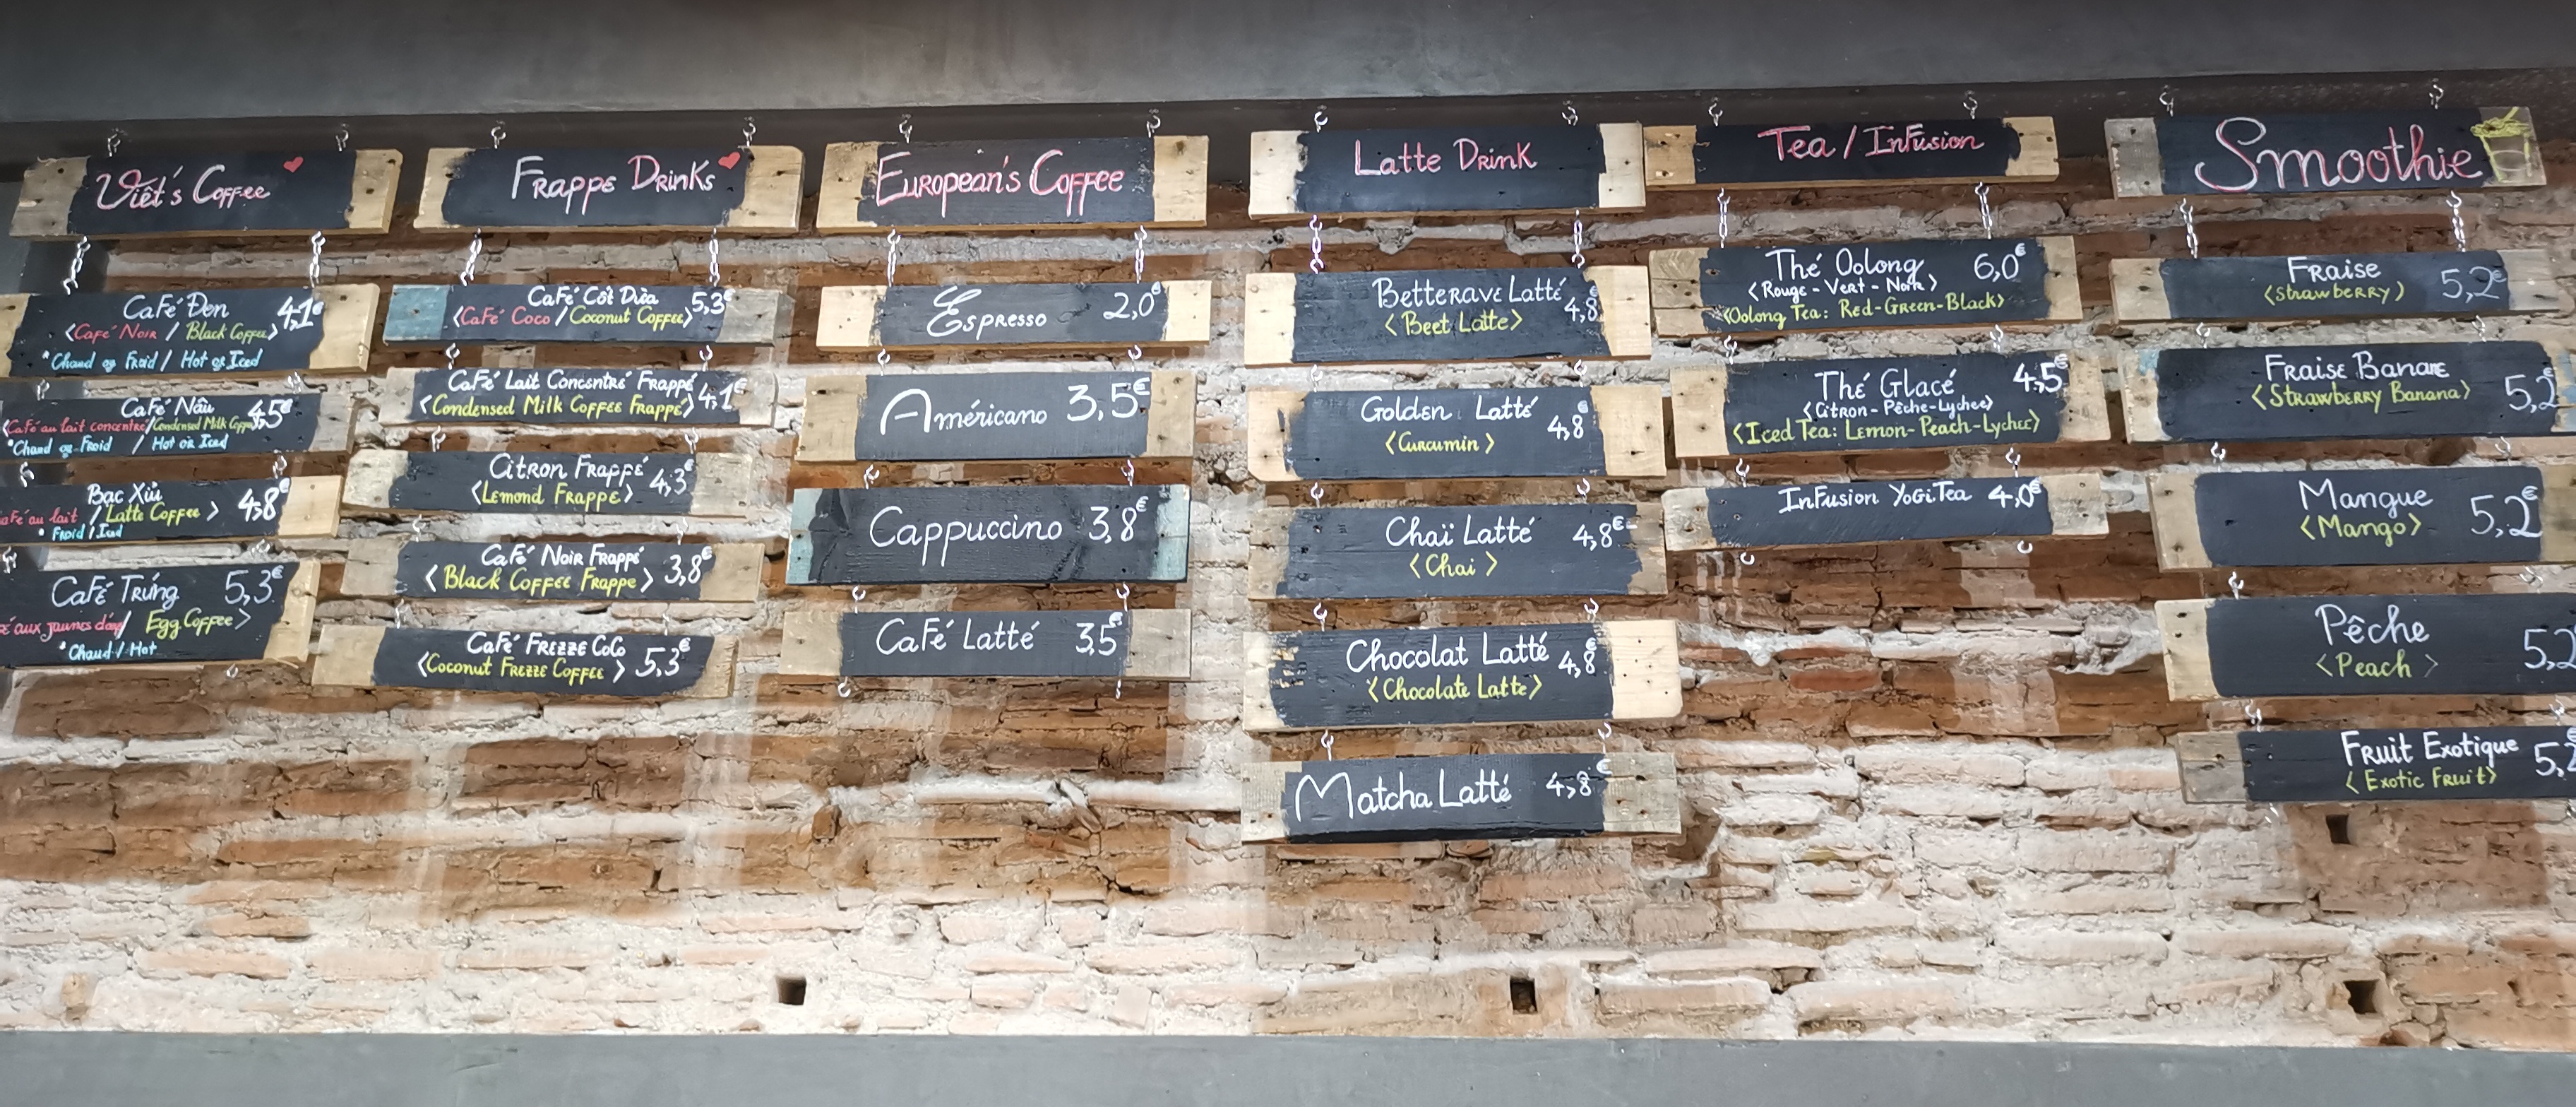 Việt's Coffee
CaFé Đen 4,1€
<Café Noir / Black Coffee>
*Chaud or Froid / Hot or Iced
CaFé Nâu 4,5€
<Café au lait concentré/Condensed Milk Coffee>
*Chaud or Froid / Hot or Iced
Bạc Xỉu 4,8€
aFé au lait / Latte Coffee >
* Froid / Iced
CaFé Trứng 5,3€
é aux jaunes d'œuf/ Egg Coffee>
*Chaud / Hot
Frappe Drinks
CaFé Côt Dừa 5,3€
<CaFé Coco / Coconut Coffee>
CaFé Lait Concentré Frappé 4,1€
<Condensed Milk Coffee Frappé>
Citron Frappé 4,3€
<Lemond Frappé>
CaFé Noir Frappé 3,8€
<Black Coffee Frappe>
CaFé Frezze CoCo 5,3€
<Coconut Frezze Coffee>
European's Coffee
Espresso 2,0€
Américano 3,5€
Cappuccino 3,8€
CaFé Latté 3,5€
Latte Drink
Betterave Latté 4,8€
<Beet Latte>
Golden Latté 4,8€
<Curcumin>
Chaï Latté 4,8€
<Chai>
Chocolat Latté 4,8€
<Chocolate Latte>
Matcha Latté 4,8€
Tea / InFusion
Thé Oolong 6,0€
<Rouge - Vert - Noir>
<Oolong Tea: Red-Green-Black>
Thé Glacé 4,5€
<Citron-Pêche-Lychee>
<Iced Tea: Lemon-Peach-Lychee>
InFusion YoGi Tea 4,0€
Smoothie
Fraise 5,2€
<Strawberry>
Fraise Banane 5,2
<Strawberry Banana>
Mangue 5,2€
<Mango>
Pêche 5,2
<Peach>
Fruit Exotique 5,2
<Exotic Fruit>